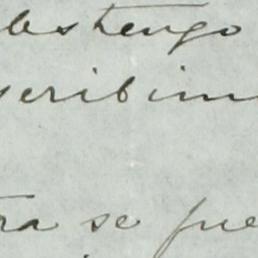 bstengo
scribim
ra se pue